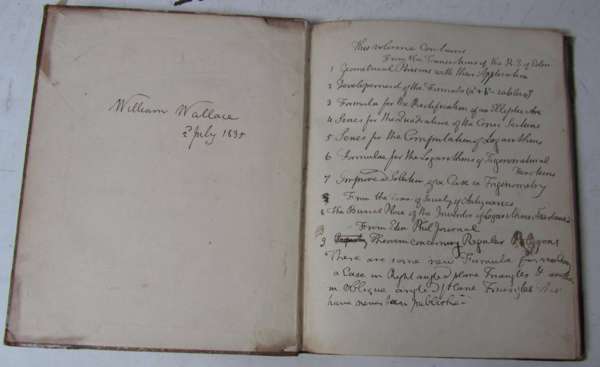 William Wallace
2 July 1835
This volume Contains
From the Transactions of the R.S of Edin
1 Geometrical Porisms with their Application
2 Developement of the Formula
3 Formula for the Rectification of an Elliptic Arc
4 Series for the Quadrature of the Conic Sections
5 Series for the Computation of Logarithms
6 Formulae for the Logarithms of Trigonometrical
Functions
7 Improved Solution of a Case in Trigonometry
From the Trans. of Society of Antiquaries
8 The Burial Place of the Inventor of Logarithms
From Edin Phil Journal
9 Theorem concerning Regular Polygons
There are some new Formula for
a Case in Right angled plane Triangles &
in oblique angled plane Triangles
have never been published